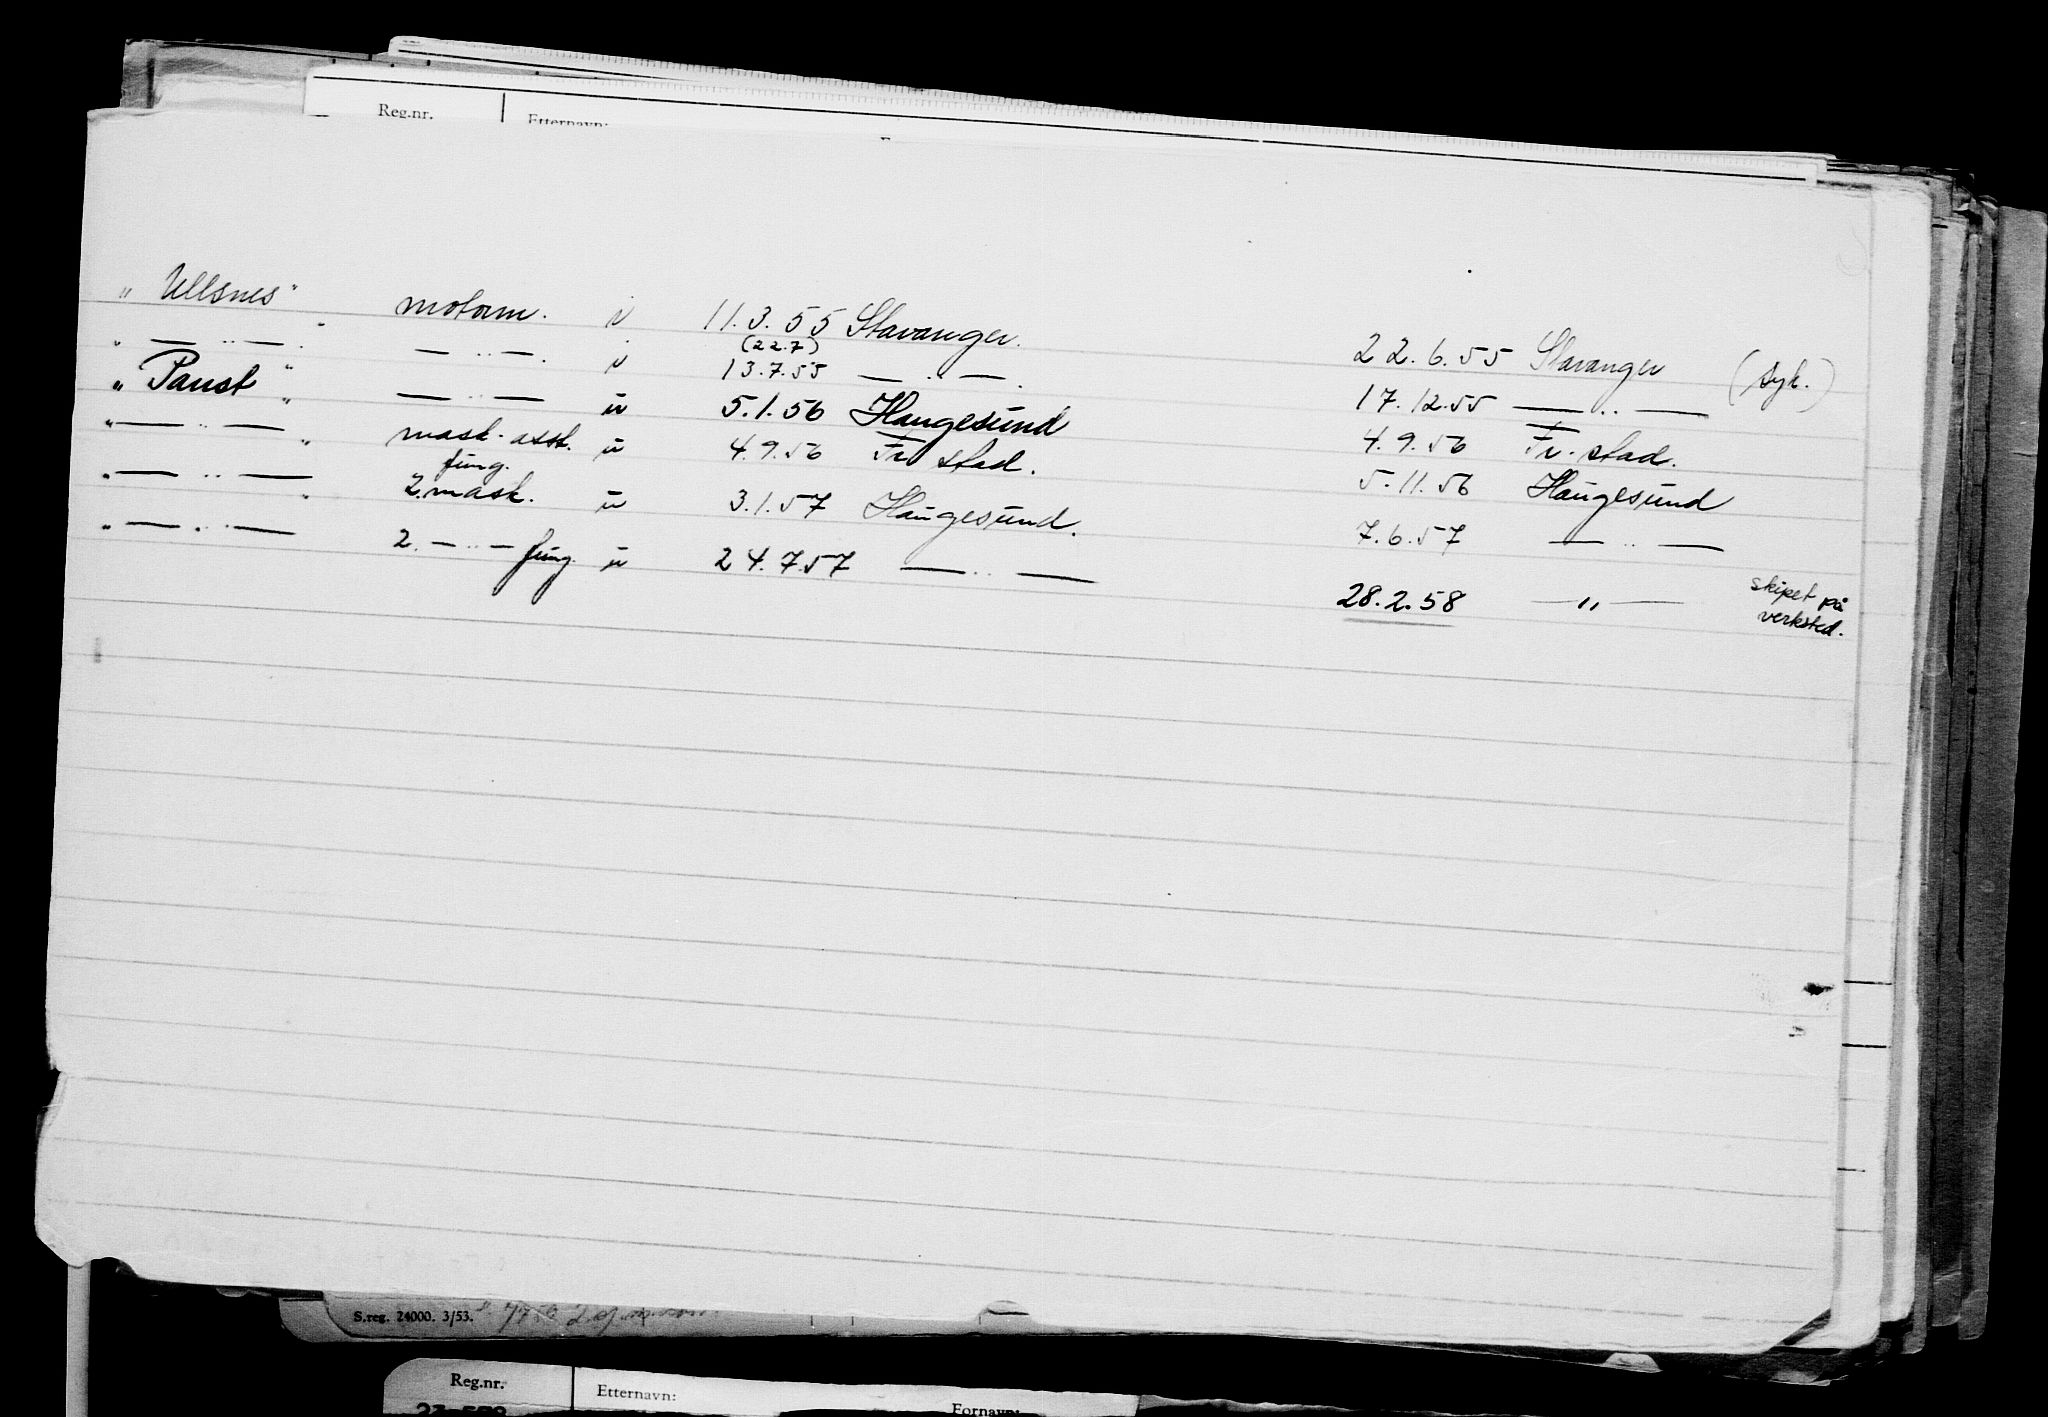 Reg.nr. Etternavn:
„ Ullsnes" motorm. i 11.3.55 Stavanger. 22.6.55 Stavanger (syk.)
„ — „ — " — „ — . i (22.7) 13.7.55 — „ — . 17.12.55 — „ —
„ Paust " — „ — u 5.1.56 Haugesund 4.9.56 Fr.stad.
„ — „ — " mask. asst. u 4.9.56 Fr stad. 5.11.56 Haugesund
„ — „ — " fung. 2. mask. u 3.1.57 Haugesund. 7.6.57 — „ —
„ — „ — " 2. — „ — fung. u 24.7.57 — „ — 28.2.58 — „ — skipet på verksted.
S.reg. 24000. 3/53.
Reg.nr. Etternavn: Fornavn: